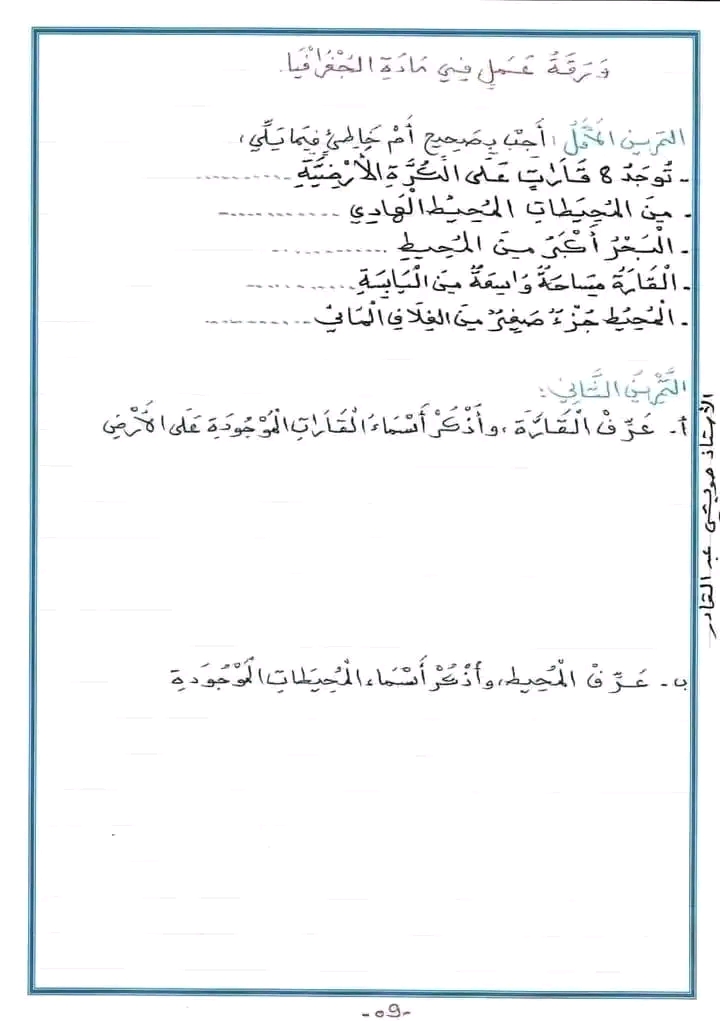 وَرَقَةُ عَمَلٍ فِي مَادَةِ الجُغْرَافْيَا.
التمرين الأَوَّلُ: أَجِبْ بِصَحِيحٍ أَمْ خَاطِئٍ فِيمَا يَلِّي:
- تُوجَدُ 8 قَارَاتٍ عَلَى الْكُرَّةِ الأَرْضِيَّةِ ..........
- مِنَ المُحِيطَاتِ المُحِيطُ الْهَادِي ............
- الْبَحْرُ أَكْبَرُ مِنَ المُحِيطِ ............
- الْقَارَةُ مِسَاحَةٌ وَاسِعَةٌ مِنَ الْيَابِسَةِ ............
- الْمُحِيطُ جُزْءٌ صَغِيرٌ مِنَ الغِلَافِ الْمَائِي ............
التَّمْرِينُ الثَّانِي:
أ- عَرِّفْ الْقَارَّةَ، وَأَذْكُرْ أَسْمَاءَ الْقَارَاتِ الْمَوْجُودَةِ عَلَى الأَرْضِ
ب- عَرِّفْ الْمُحِيطَ، وَأَذْكُرْ أَسْمَاءَ الْمُحِيطَاتِ الْمَوْجُودَةِ
-09-